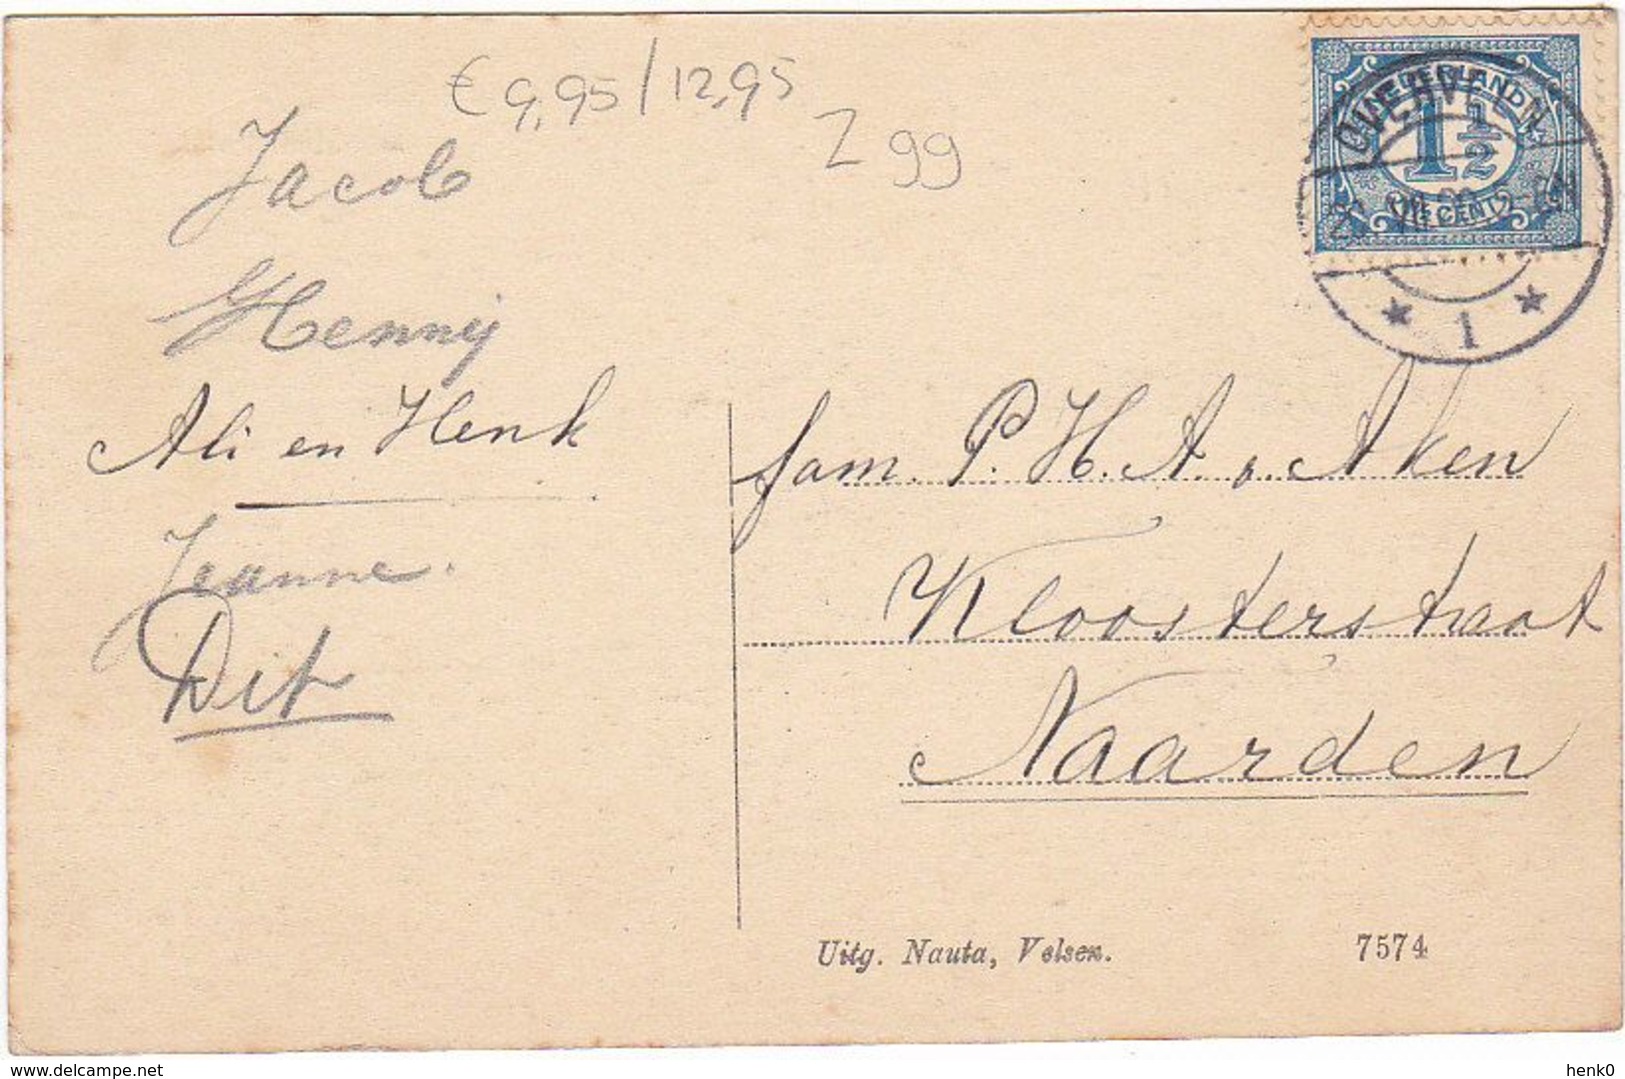 € 9,95/12,95
Z 99
Jacob
Hennij
Ali en Henk
Jeanne.
Dit
NEDERLAND
1 1/2
CENT
OVERVEEN
1
fam. P. H. A. v. Aken
Kloosterstraat
Naarden
Uitg. Nauta, Velsen.
7574
www.delcampe.net
henk0